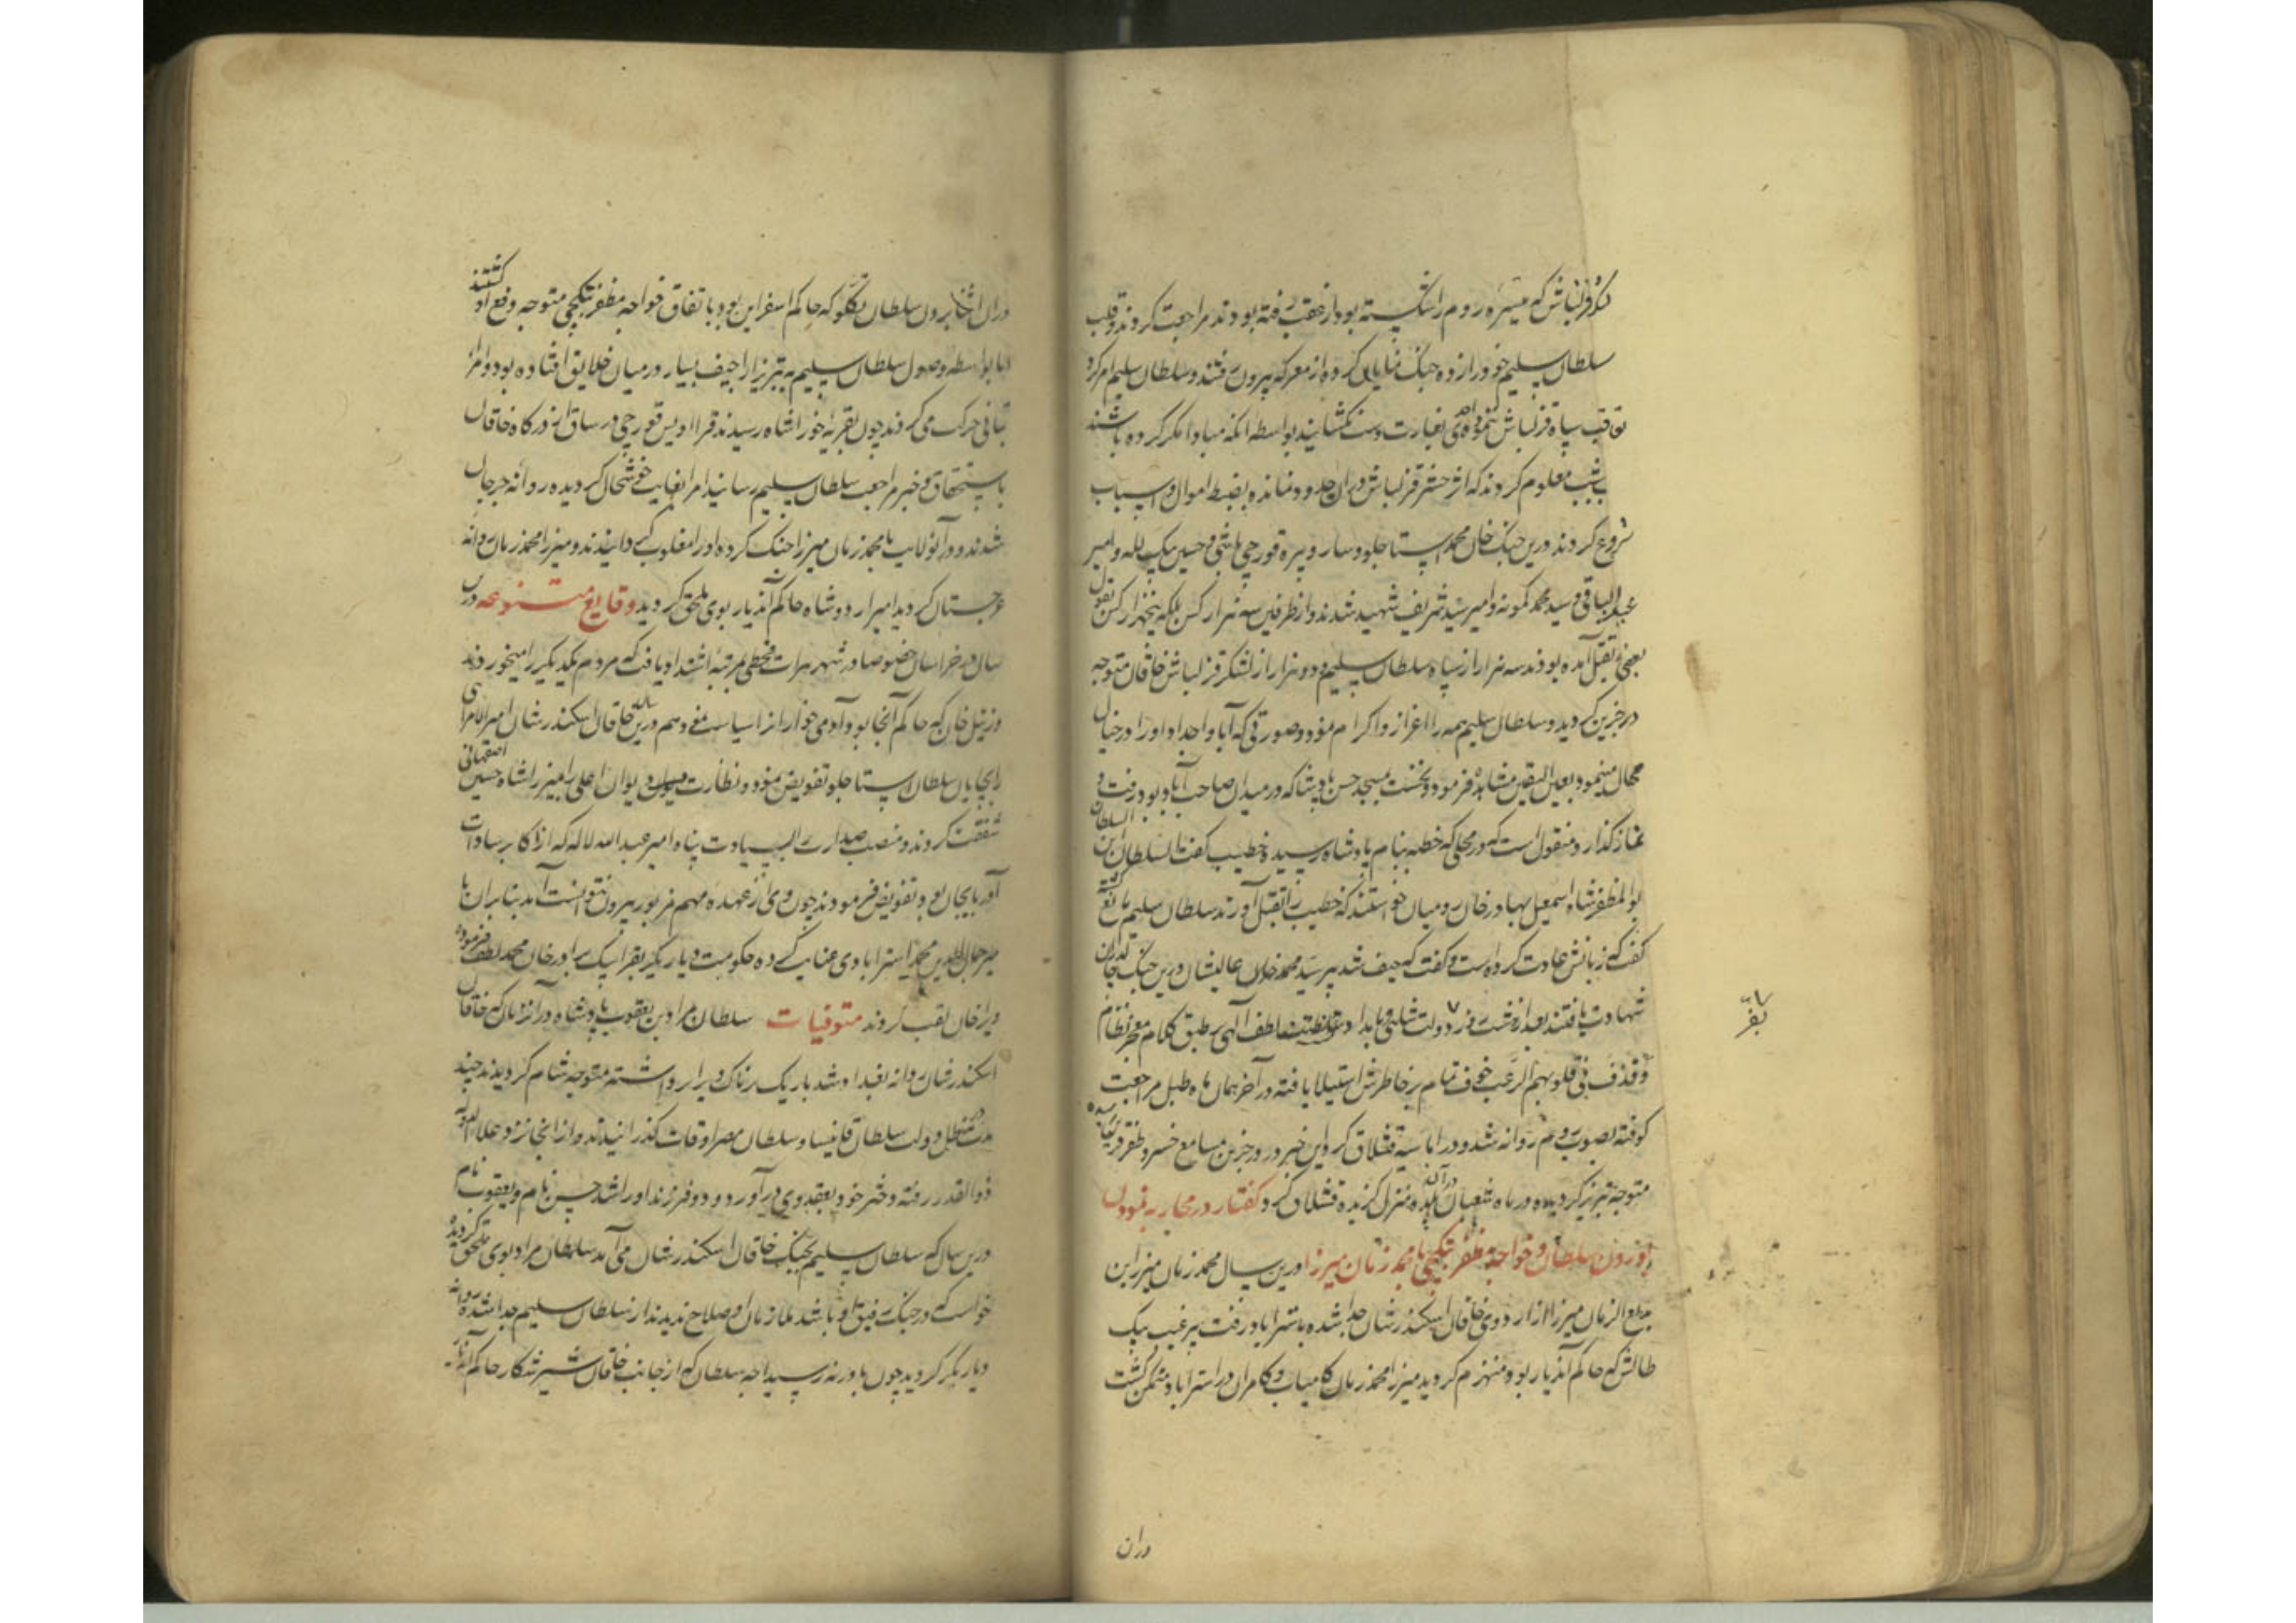 قزلباش که میسره روم را شکسته بود از عقب رفته بودند مراجعت کردند و قلب
سلطان سلیم خود را زده جنگ نمایان کرده از معرکه بیرون رفتند و سلطان سلیم امر کرد
تعاقب سپاه قزلباش ننموده غارت دست نگشایند بواسطه آنکه مبادا مکر کرده باشند
شب معلوم کردند که از حشر قزلباش در آن حدود نمانده بضبط اموال و اسباب
شروع کردند درین جنگ خان محمد استاجلو و سارو پیره قورچی باشی و حسین بیک لله و امیر
عبدالباقی و سید محمد کمونه و امیر سید شریف شهید شدند و از طرفین سه هزار کس بلکه پنجهزار کس بقول
بعضی بقتل آمده بودند سه هزار از سپاه سلطان سلیم و دو هزار از لشکر قزلباش خاقان متوجه
درجزین گردید و سلطان سلیم همه را اعزاز و اکرام نمود و صورتی که آبا و اجداد او را در خیال
محال مینمود بعین الیقین مشاهده فرمود و نخست بمسجد حسن پادشاه که در میدان صاحب آباد بود رفت و
نماز گذارد و منقول است که در محلی که خطبه بنام پادشاه رسیده خطیب گفت السلطان ابن السلطان
ابو المظفر شاه اسمعیل بهادر خان رومیان خواستند که خطیب را بقتل آورند سلطان سلیم مانع گشته
گفت که زبانش عادت کرده است و گفت که حیف شد پسر سید محمد خان عالیشان درین جنگ چالدران
شهادت یافتند بعد از هشت روز دولت شاهی لطف الهی بر طبق کلام معجز نظام
و قذف فی قلوبهم الرعب خوف تمام بر خاطرش استیلا یافته در آخر همان ماه طبل مراجعت
کوفته بصوب روم روانه شد و در اماسیه قشلاق کرد این خبر در درجزین بمسامع خسرو ظفر قرین رسیده
متوجه تبریز گردیده در ماه شعبان در آن بلده منزل گزیده قشلاق کرد گفتار در محاربه نمودن
بورون سلطان و خواجه مظفر بتکچی با محمد زمان میرزا درین سال محمد زمان میرزا بن
بدیع الزمان میرزا از اردوی خاقان اسکندر شان جدا شده باسترآباد رفت پیر غیب بیک
طالش که حاکم آندیار بود منهزم گردید میرزا محمد زمان کامیاب و کامران در استراباد متمکن گشت
در آن
در آن اثنا برون سلطان تکلو که حاکم اسفراین بود باتفاق خواجه مظفر بتکچی متوجه دفع او گشتند
اما بواسطه وصول سلطان سلیم به تبریز اراجیف بسیار در میان خلایق افتاده بود و امرا
بتانی حرکت می کردند چون بقریه خور انشاه رسیدند قرا اویس قورچی درساق از درگاه خاقان
باستحقاق خبر مراجعت سلطان سلیم رسانید امرا بغایت خوشحال گردیده روانه جرجان
شدند و در آن ولایت با محمد زمان میرزا جنگ کرده او را مغلوب گردانیدند و میرزا محمد زمان روانه
غرجستان گردید امیر اردوشاه حاکم آندیار بوی ملحق گردید وقایع متنوعه درین
سال در خراسان خصوصا در شهر هرات قحطی بمرتبه اشتداد یافت که مردم یکدیگر را میخوردند
و زینل خان که حاکم آنجا بود آدمی خواران را سیاست نمود هم درین سال خاقان اسکندر شان امیر الامرای
را بچایان سلطان استاجلو تفویض نمود و نظارت دیوان اعلی را بمیرزا شاه حسین اصفهانی
شفقت کردند و منصب صدارت السیادت پناه امیر عبدالله لاله که از اکابر سادات
آذربایجان بود تفویض فرمودند چون وی از عهده مهم مزبور بیرون نتوانست آمد بنابران با
میر جمال الدین محمد استرابادی عنایت کرده حکومت دیاربکر بقرا بیک برادر خان محمد لطف فرموده
ویرا خان لقب کردند متوفیات سلطان مراد بن یعقوب پادشاه در آن زمان که خاقان
اسکندر شان روانه بغداد شد باریک پرناک ویرا برداشته متوجه شام گردیدند چند
مدت در ظل دولت سلطان قانیسا و سلطان مصر اوقات گذرانیدند و از آنجا نزد علاء الدوله
ذوالقدر رفته دختر خود بعقد وی درآورد و دو فرزند او را شد حسن نام و یعقوب نام
درین سال که سلطان سلیم بجنگ خاقان اسکندر شان می آمد سلطان مراد بوی ملحق گردید
خواست که در جنگ رفیق او باشد ملازمان او صلاح ندیدند از سلطان سلیم جدا شده روانه
دیاربکر گردید چون باورفه رسید اجه سلطان که از جانب خاقان شیر شکار حاکم آندیار